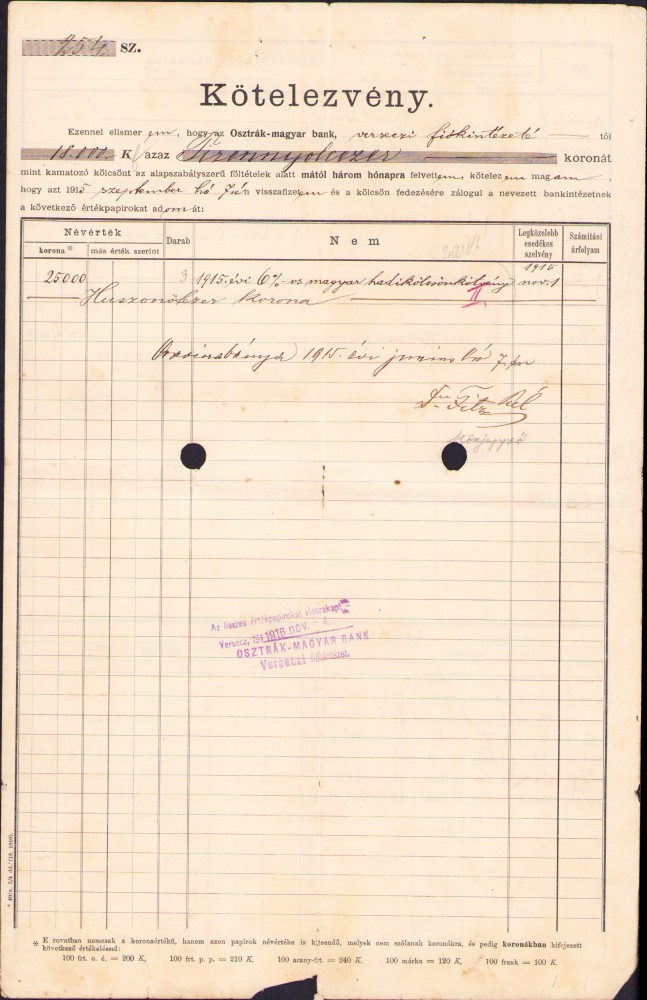 254 sz.
Kötelezvény.
Ezennel elismerem, hogy az Osztrák-magyar bank, verseczi fiókintézetétől
18.000 K azaz Tizennyolczezer koronát
mint kamatozó kölcsönt az alapszabályszerű föltételek alatt mától három hónapra felvettem, kötelezem magam,
hogy azt 1915 szeptember hó 7ién visszafizetem és a kölcsön fedezésére zálogul a nevezett bankintézetnek
a következő értékpapirokat adom át:
Névérték
korona * más érték szerint
Darab
Nem
Legközelebb esedékes szelvény
Számitási árfolyam
25000 3 1915. évi 6%-os magyar hadikölcsönkötvény 1915 nov. 1
II.
Huszonötezer korona
1915. évi junius hó 7-én
Dr. Fitz Bél
közjegyző
Az összes értékpapirokat visszakapta
Versecz, 191 1916 NOV. - 4.
OSZTRÁK-MAGYAR BANK
Verseczi fiókintézet.
* E rovatban nemcsak a koronaértékű, hanem azon papirok névértéke is kiteendő, melyek nem szólanak koronákra, és pedig koronákban kifejezett
következő értékeléssel:
100 frt. o. é. = 200 K, 100 frt. p. p. = 210 K, 100 arany-frt. = 240 K, 100 márka = 120 K, 100 frank = 100 K.